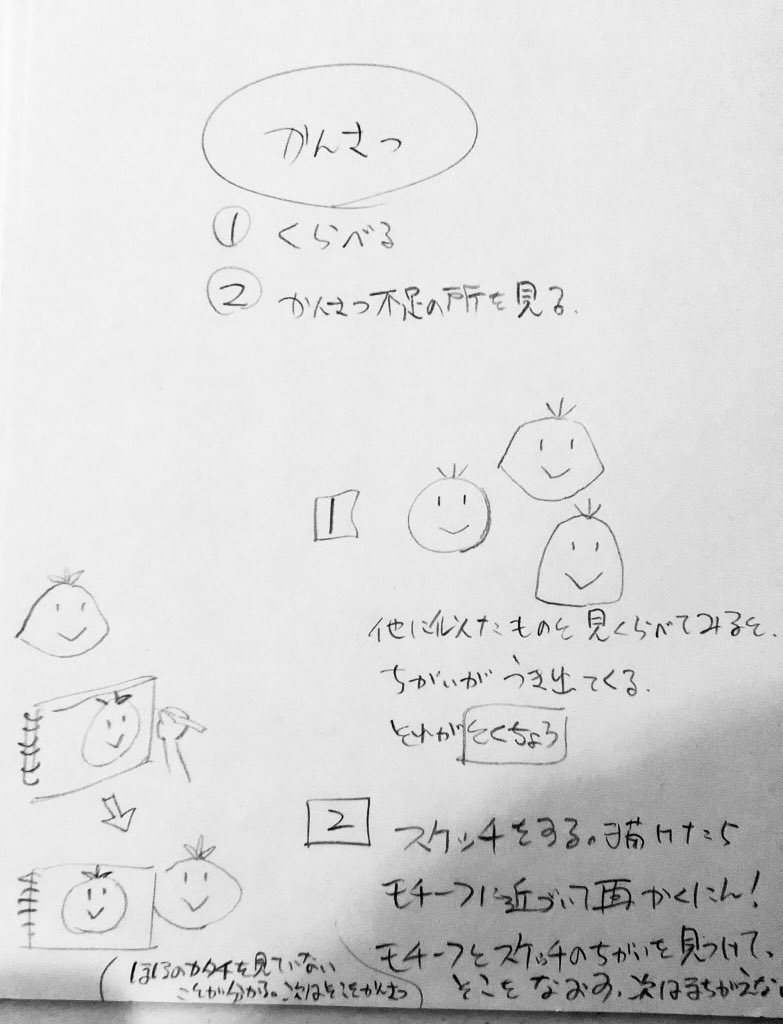 かんさつ
① くらべる
② かんさつ不足の所を見る.
1
他に似たものと見くらべてみると、
ちがいがうき出てくる.
それがとくちょう
2
スケッチをする。描けたら
モチーフに近づいて再かくにん!
モチーフとスケッチのちがいを見つけて、
そこをなおす、次はまちがえない
(ほほのカタチを見ていない
ことが分かる。次はそこをかんさつ